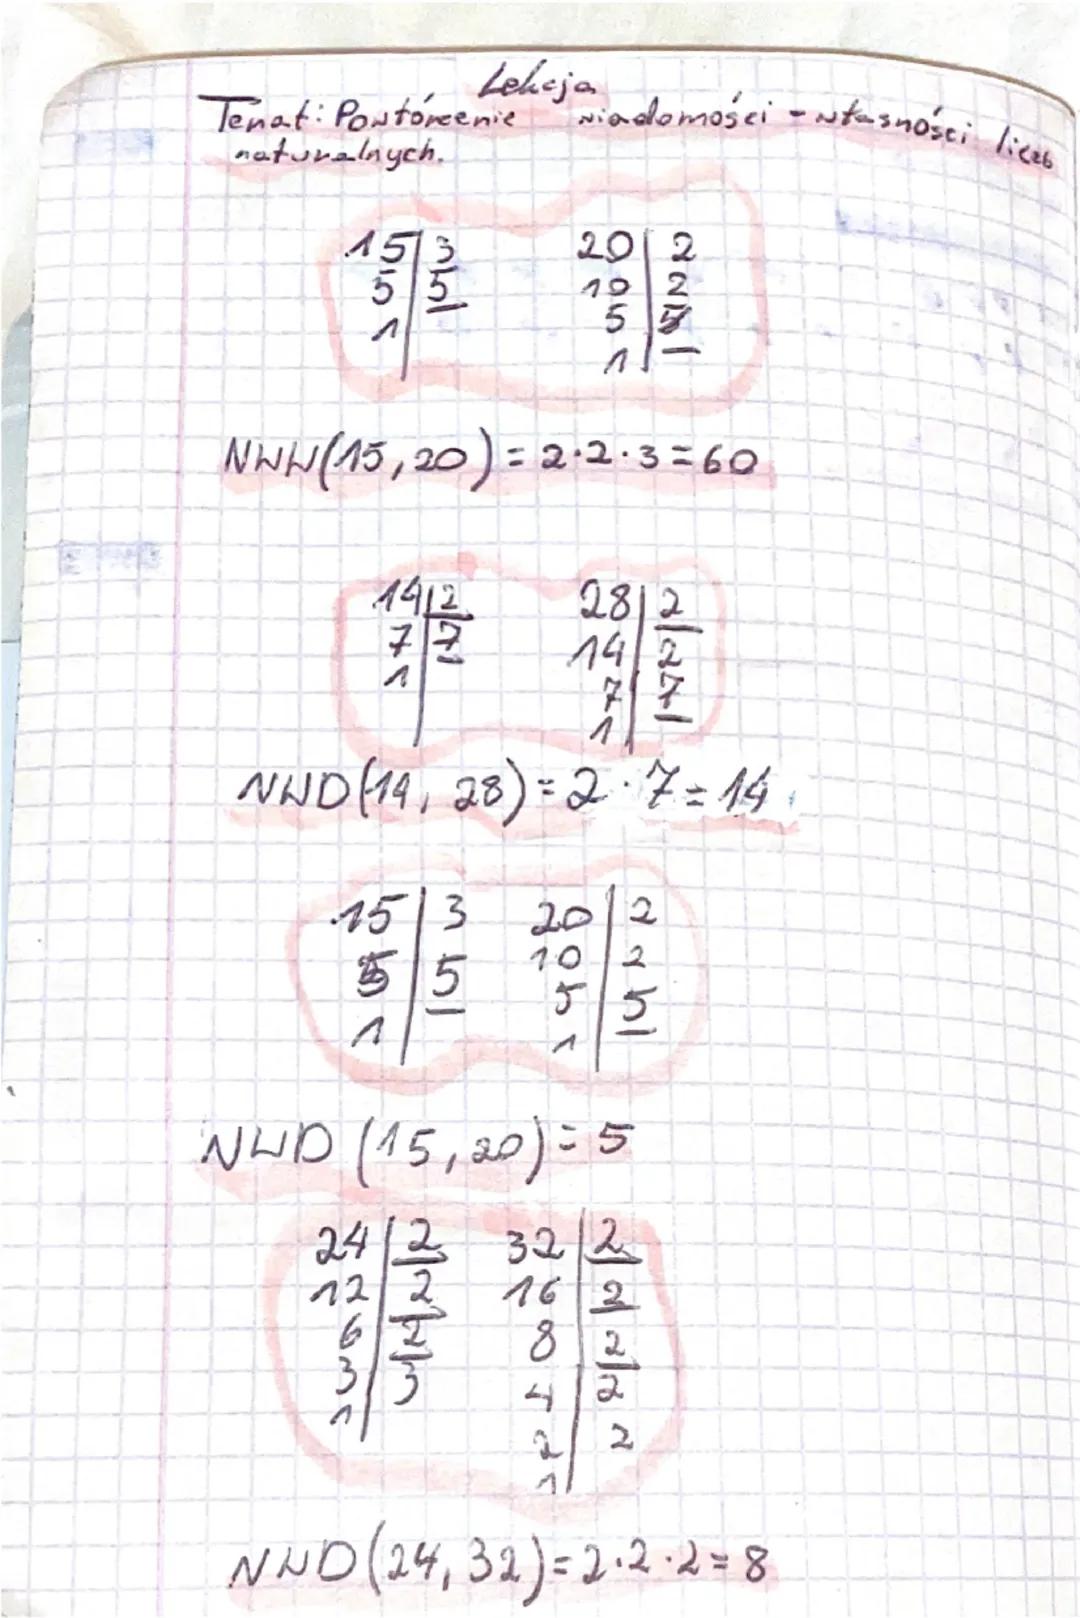 Lekcja
Temat: Powtórzenie wiadomości - własności liczb
naturalnych.
15|3 20|2
5|5 10|2
1| 5|5
1|
NWW(15,20)=2·2·3=60
14|2 28|2
7|7 14|2
1| 7|7
1|
NWD(14, 28)=2·7=14
15|3 20|2
5|5 10|2
1| 5|5
1|
NWD (15,20)=5
24|2 32|2
12|2 16|2
6|2 8|2
3|3 4|2
1| 2|2
1|
NWD(24,32)=2·2·2=8